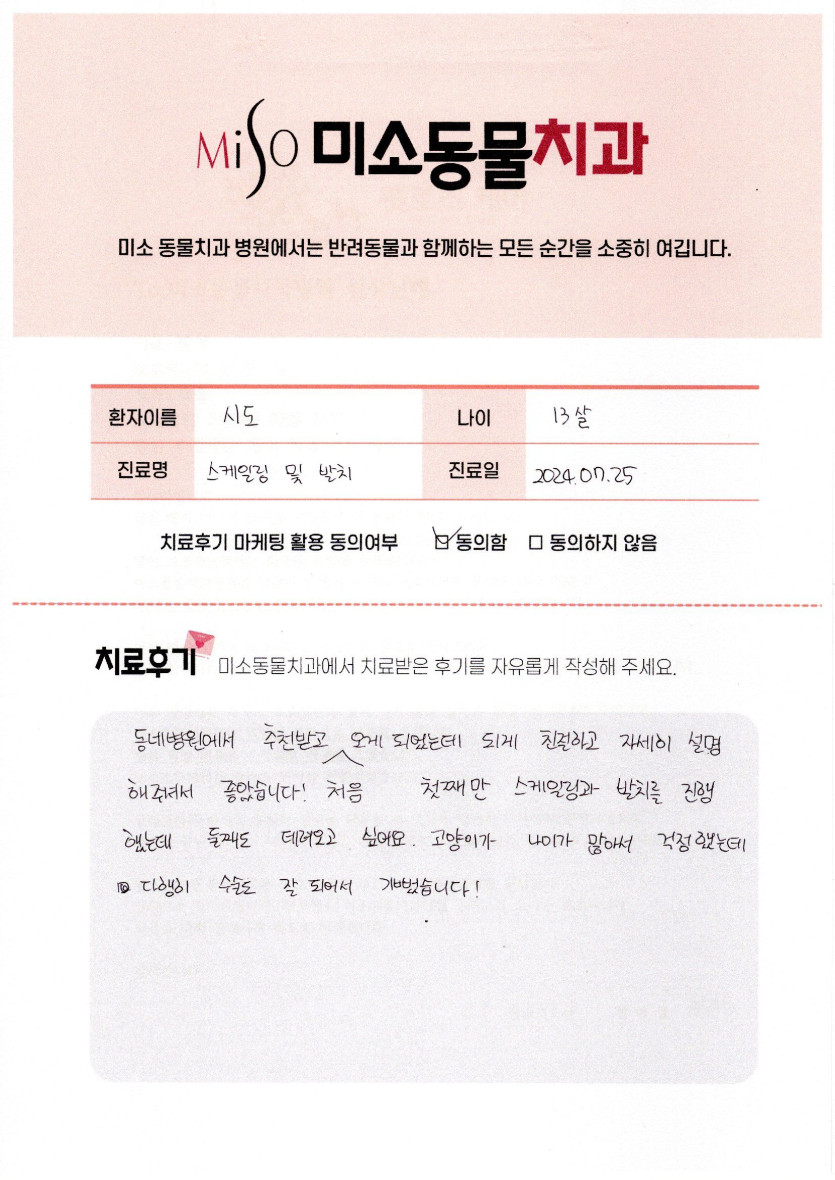 MiSO 미소동물치과
미소 동물치과 병원에서는 반려동물과 함께하는 모든 순간을 소중히 여깁니다.
환자이름 시도 나이 13살
진료명 스케일링 및 발치 진료일 2024.07.25
치료후기 마케팅 활용 동의여부 ☑ 동의함 ☐ 동의하지 않음
치료후기 미소동물치과에서 치료받은 후기를 자유롭게 작성해 주세요.
동네병원에서 추천받고 오게 되었는데 되게 친절하고 자세히 설명
해주셔서 좋았습니다! 처음 첫째만 스케일링과 발치를 진행
했는데 둘째도 데려오고 싶어요. 고양이가 나이가 많아서 걱정했는데
다행히 수술도 잘 되어서 기뻤습니다!